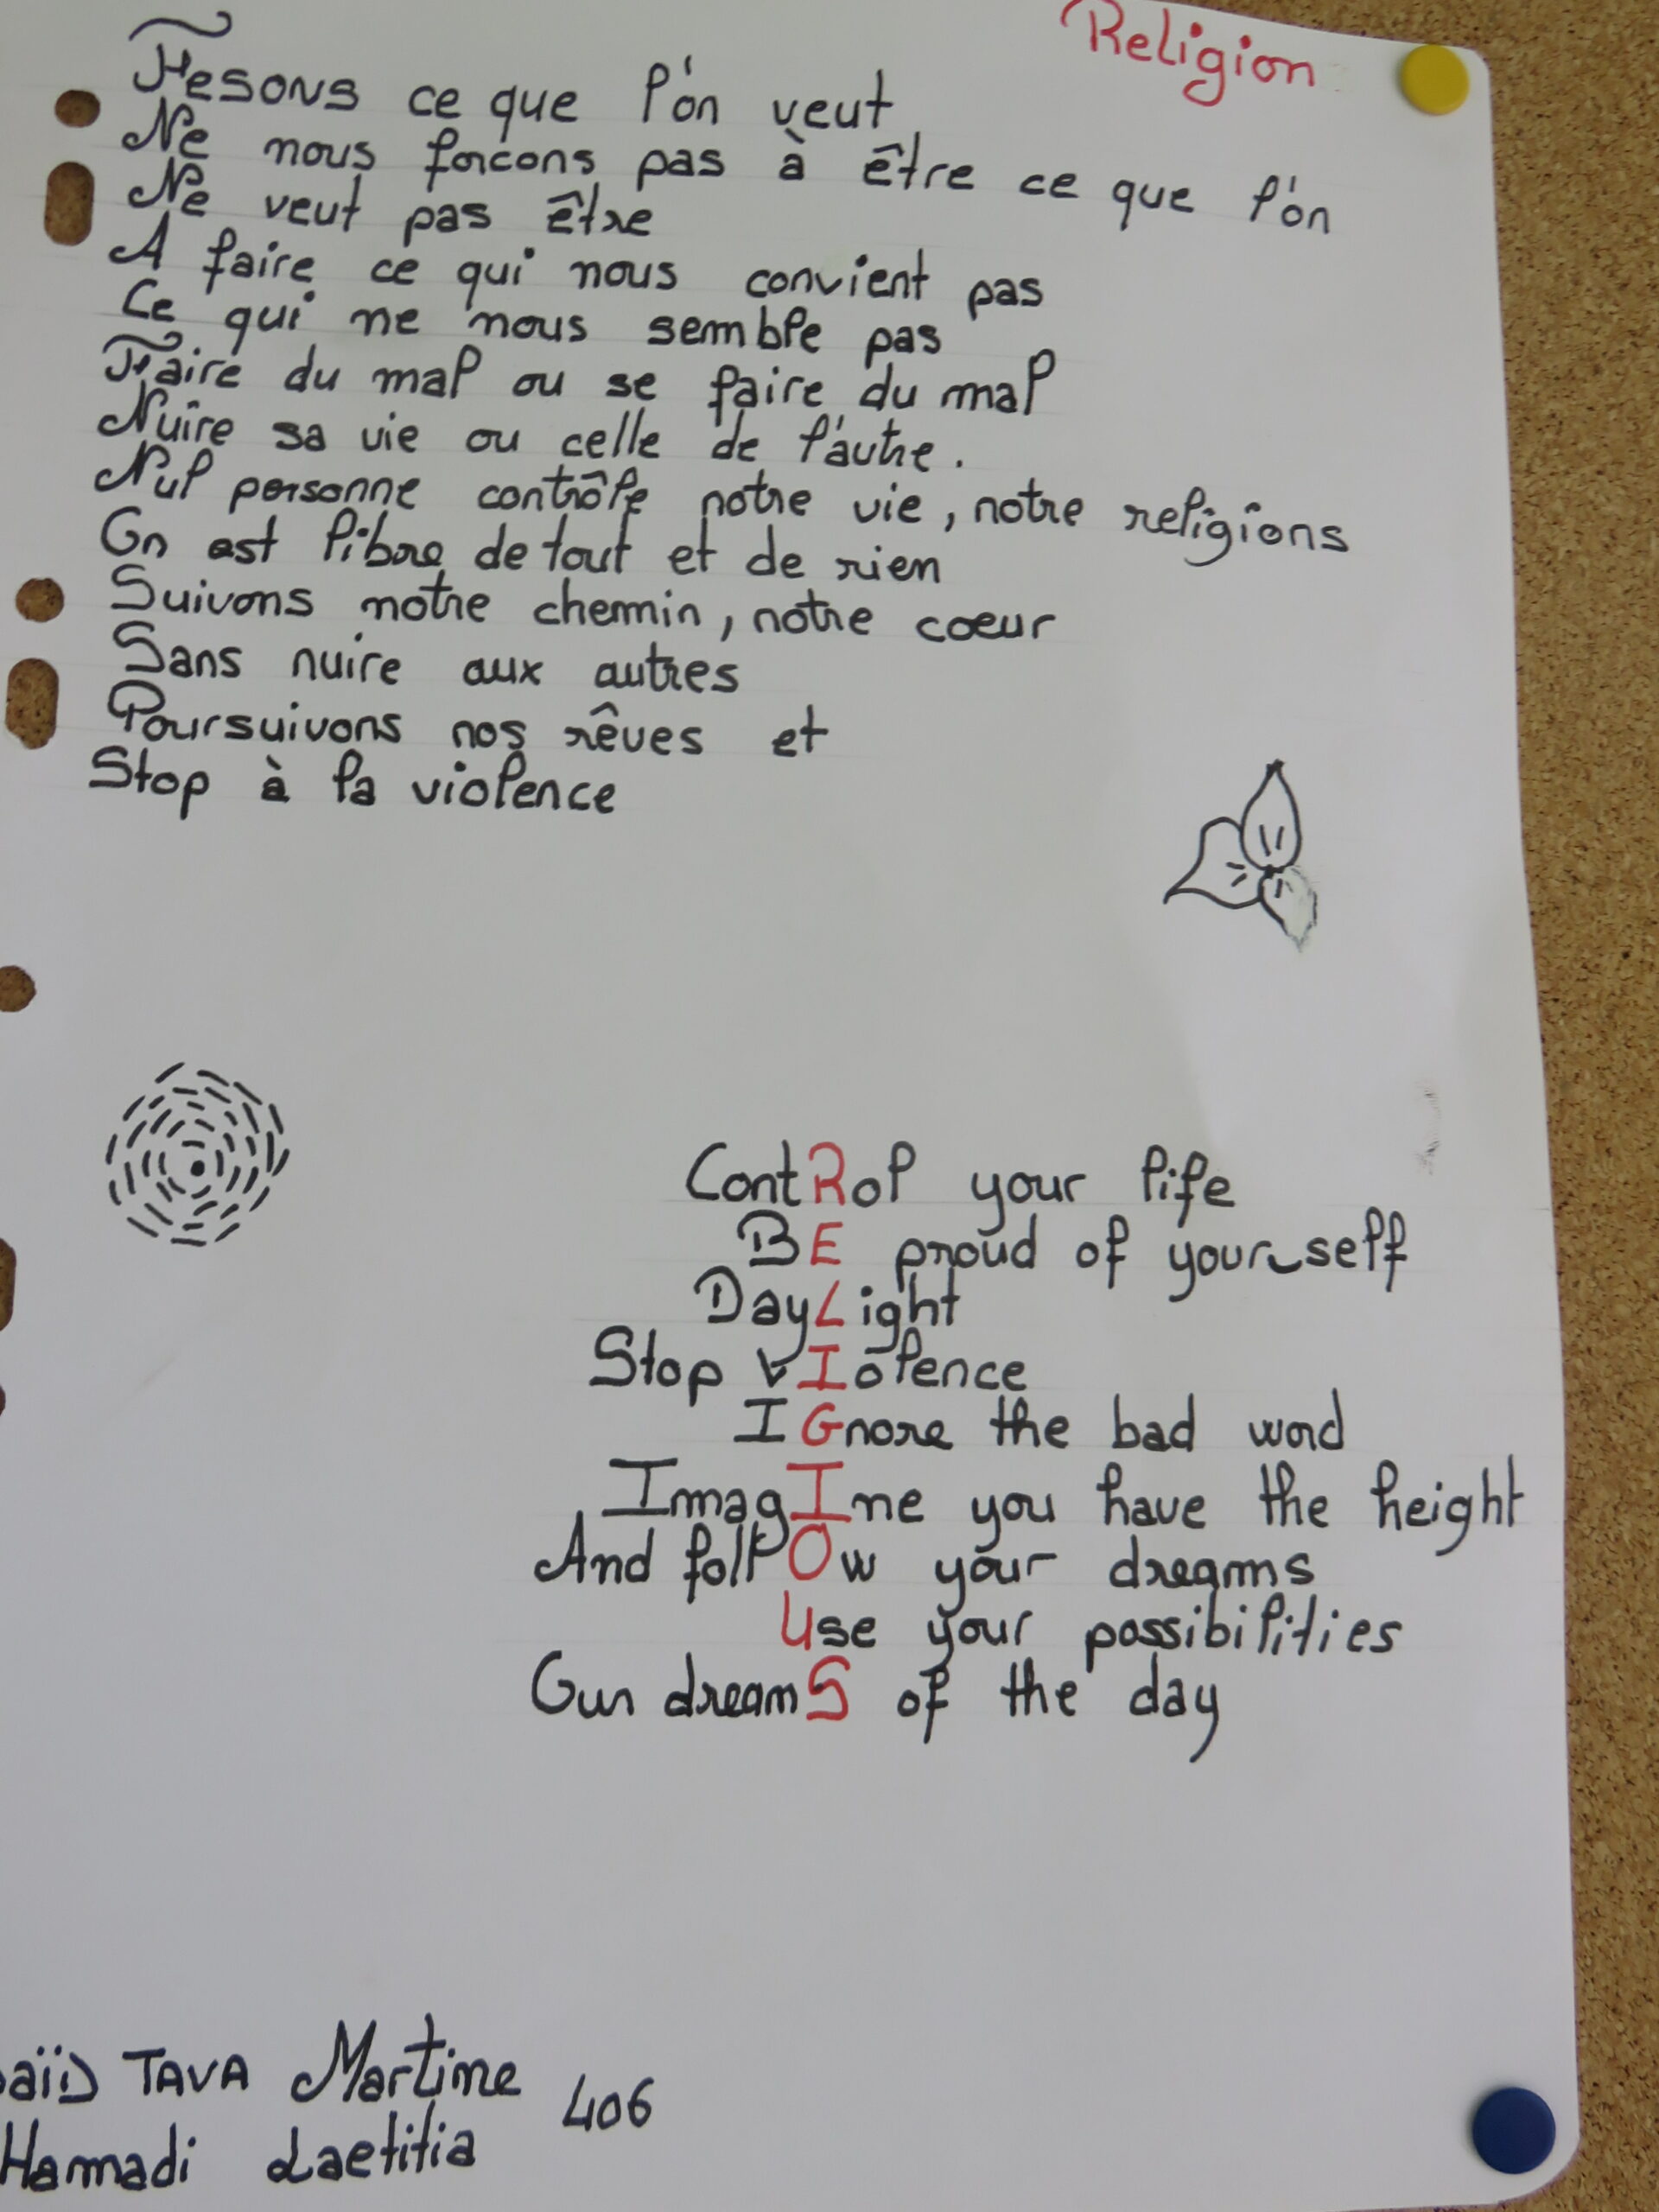 Religion
Fesons ce que l'on veut
Ne nous forcons pas à être ce que l'on
Ne veut pas être
A faire ce qui nous convient pas
Ce qui ne nous semble pas
Faire du mal ou se faire du mal
Nuire sa vie ou celle de l'autre.
Nul personne contrôle notre vie, notre religions
On est libre de tout et de rien
Suivons notre chemin, notre coeur
Sans nuire aux autres
Poursuivons nos rêves et
Stop à la violence
ContRol your life
BE proud of yourself
DayLight
Stop vIolence
IGnore the bad word
ImagIne you have the height
And follOw your dreams
Use your possibilities
Our dreamS of the day
TAVA Martine 406
Hamadi Laetitia